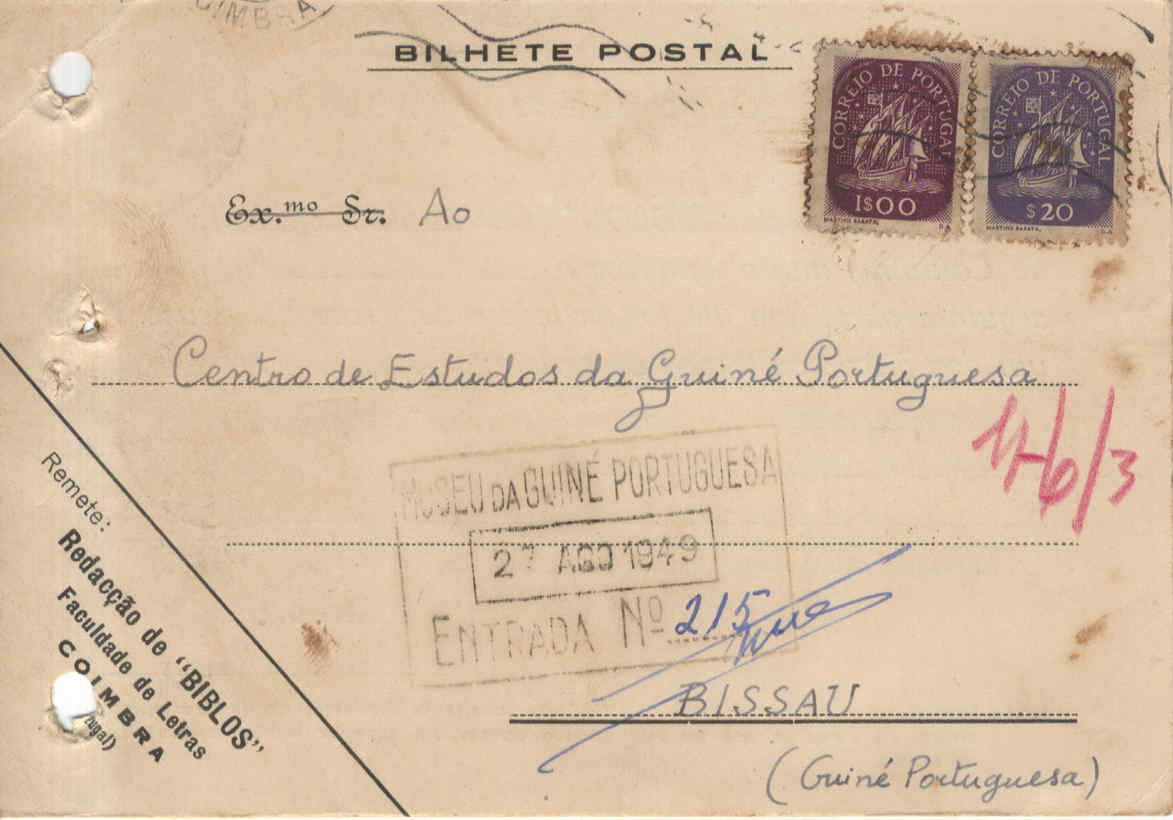 OIMBRA
BILHETE POSTAL
CORREIO DE PORTUGAL
1$00
MARTINS BARATA.
CORREIO DE PORTUGAL
$20
MARTINS BARATA.
Ex.mo Sr. Ao
Centro de Estudos da Guiné Portuguesa
4-6/3
MUSEU DA GUINÉ PORTUGUESA
27 AGO 1949
ENTRADA Nº 215
BISSAU
(Guiné Portuguesa)
Remete:
Redacção de "BIBLOS"
Faculdade de Letras
COIMBRA
tugal)